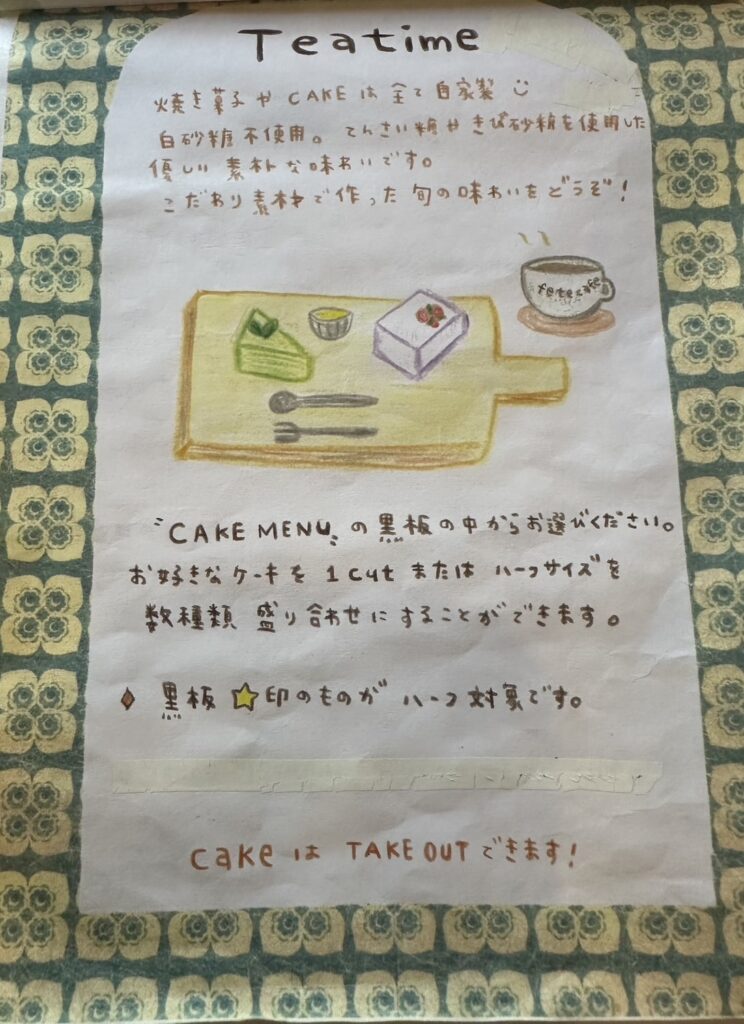 Teatime
焼き菓子や CAKE は 全て 自家製
白砂糖 不使用。 てんさい糖や きび砂糖を使用した
優しい 素朴な味わいです。
こだわり素材で作った 旬の味わいをどうぞ!
fete cafe
"CAKE MENU" の黒板の中からお選びください。
お好きなケーキを 1cut または ハーフサイズを
数種類 盛り合わせにすることができます。
♦ 黒板 ☆印のものが ハーフ対象です。
cake は TAKE OUT できます!